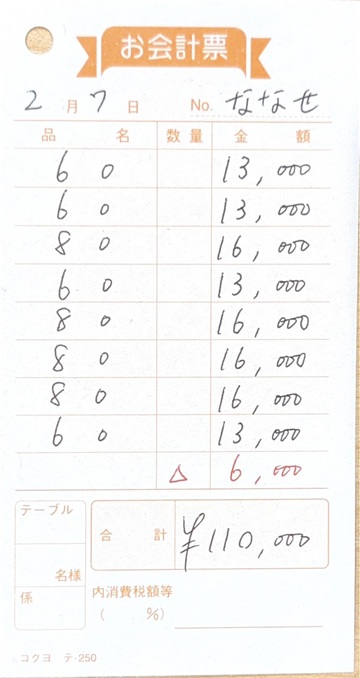 お会計票
2月7日 No. ななせ
品名 数量 金額
60 13,000
60 13,000
80 16,000
60 13,000
80 16,000
80 16,000
80 16,000
60 13,000
△ 6,000
テーブル
名様
係
合計 ¥110,000
内消費税額等
( %)
コクヨ テ-250